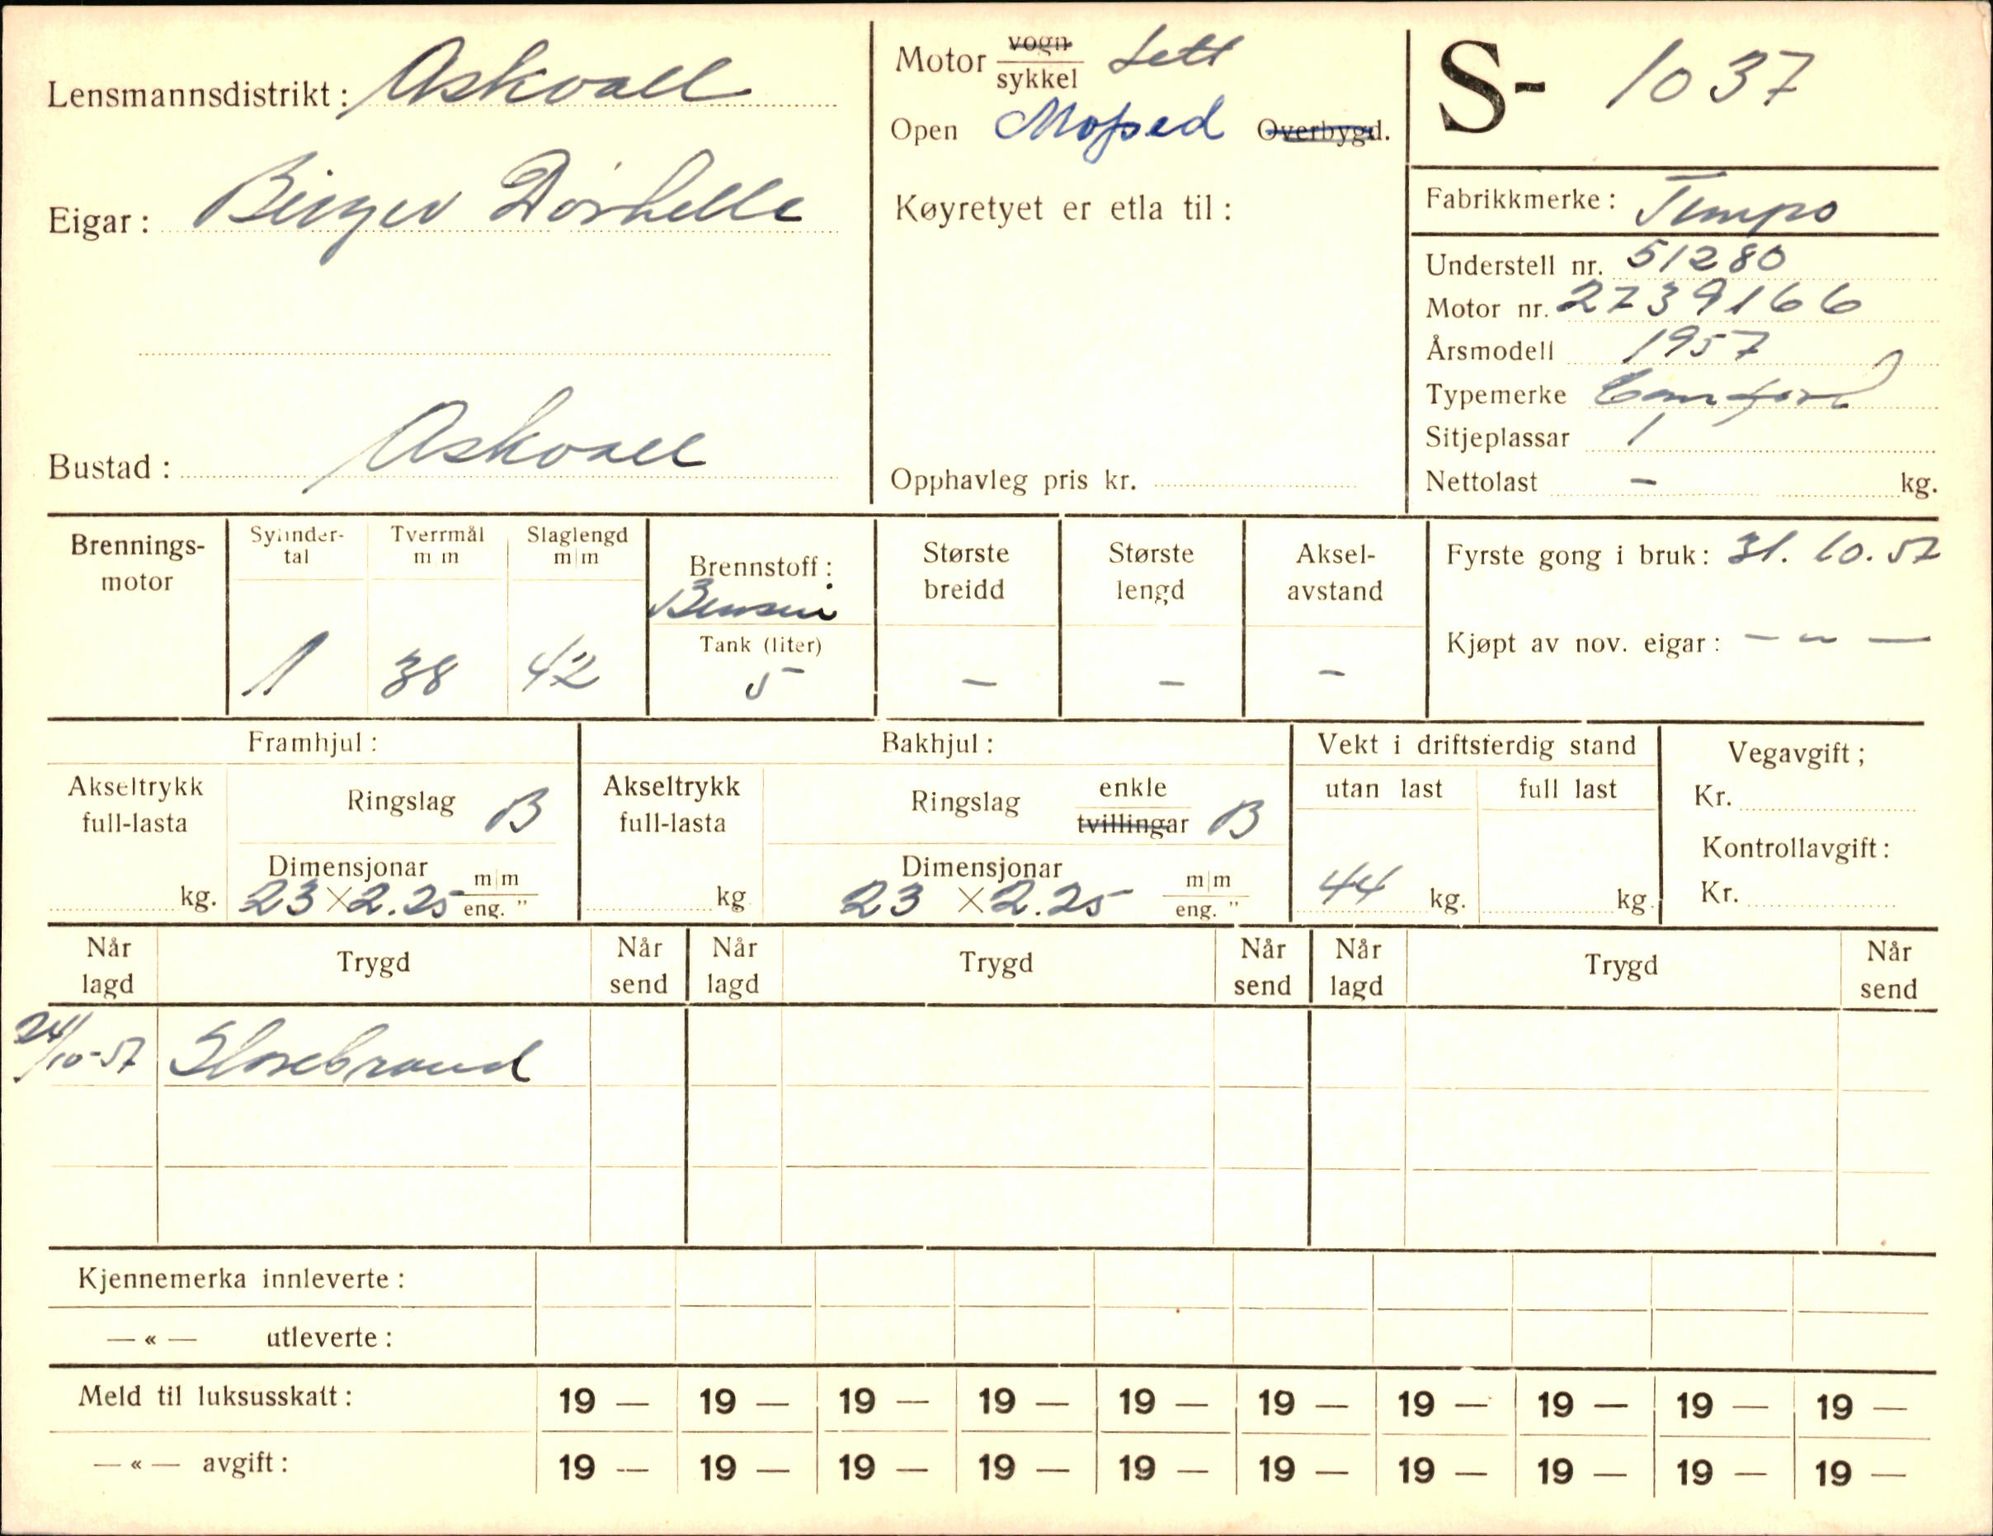 Lensmannsdistrikt: Askvoll
Eigar: Birger Dörhelle
Bustad: Askvoll
Motor vogn
sykkel Lett
Open Moped Overbygd.
Køyretyet er etla til:
Opphavleg pris kr.
S- 1037
Fabrikkmerke: Tempo
Understell nr. 51280
Motor nr. 2739166
Årsmodell 1957
Typemerke Comfort
Sitjeplassar 1
Nettolast – kg.
Brennings-
motor
Sylinder-
tal
1
Tverrmål
m m
38
Slaglengd
m|m
42
Brennstoff:
Bensin
Tank (liter)
5
Største
breidd
–
Største
lengd
–
Aksel-
avstand
–
Fyrste gong i bruk: 31. 10. 57
Kjøpt av nov. eigar: – " –
Framhjul:
Akseltrykk
full-lasta
kg.
Ringslag B
Dimensjonar
23 × 2.25 m|m
eng. "
Bakhjul:
Akseltrykk
full-lasta
kg
Ringslag enkle
tvillingar B
Dimensjonar
23 × 2.25 m|m
eng. "
Vekt i driftsferdig stand
utan last full last
44 kg. kg
Vegavgift;
Kr.
Kontrollavgift:
Kr.
Når
lagd Trygd Når
send Når
lagd Trygd Når
send Når
lagd Trygd Når
send
24/10-57 Storebrand
Kjennemerka innleverte:
— « — utleverte:
Meld til luksusskatt: 19 — 19 — 19 — 19 — 19 — 19 — 19 — 19 — 19 — 19 —
— « — avgift: 19 — 19 — 19 — 19 — 19 — 19 — 19 — 19 — 19 — 19 —